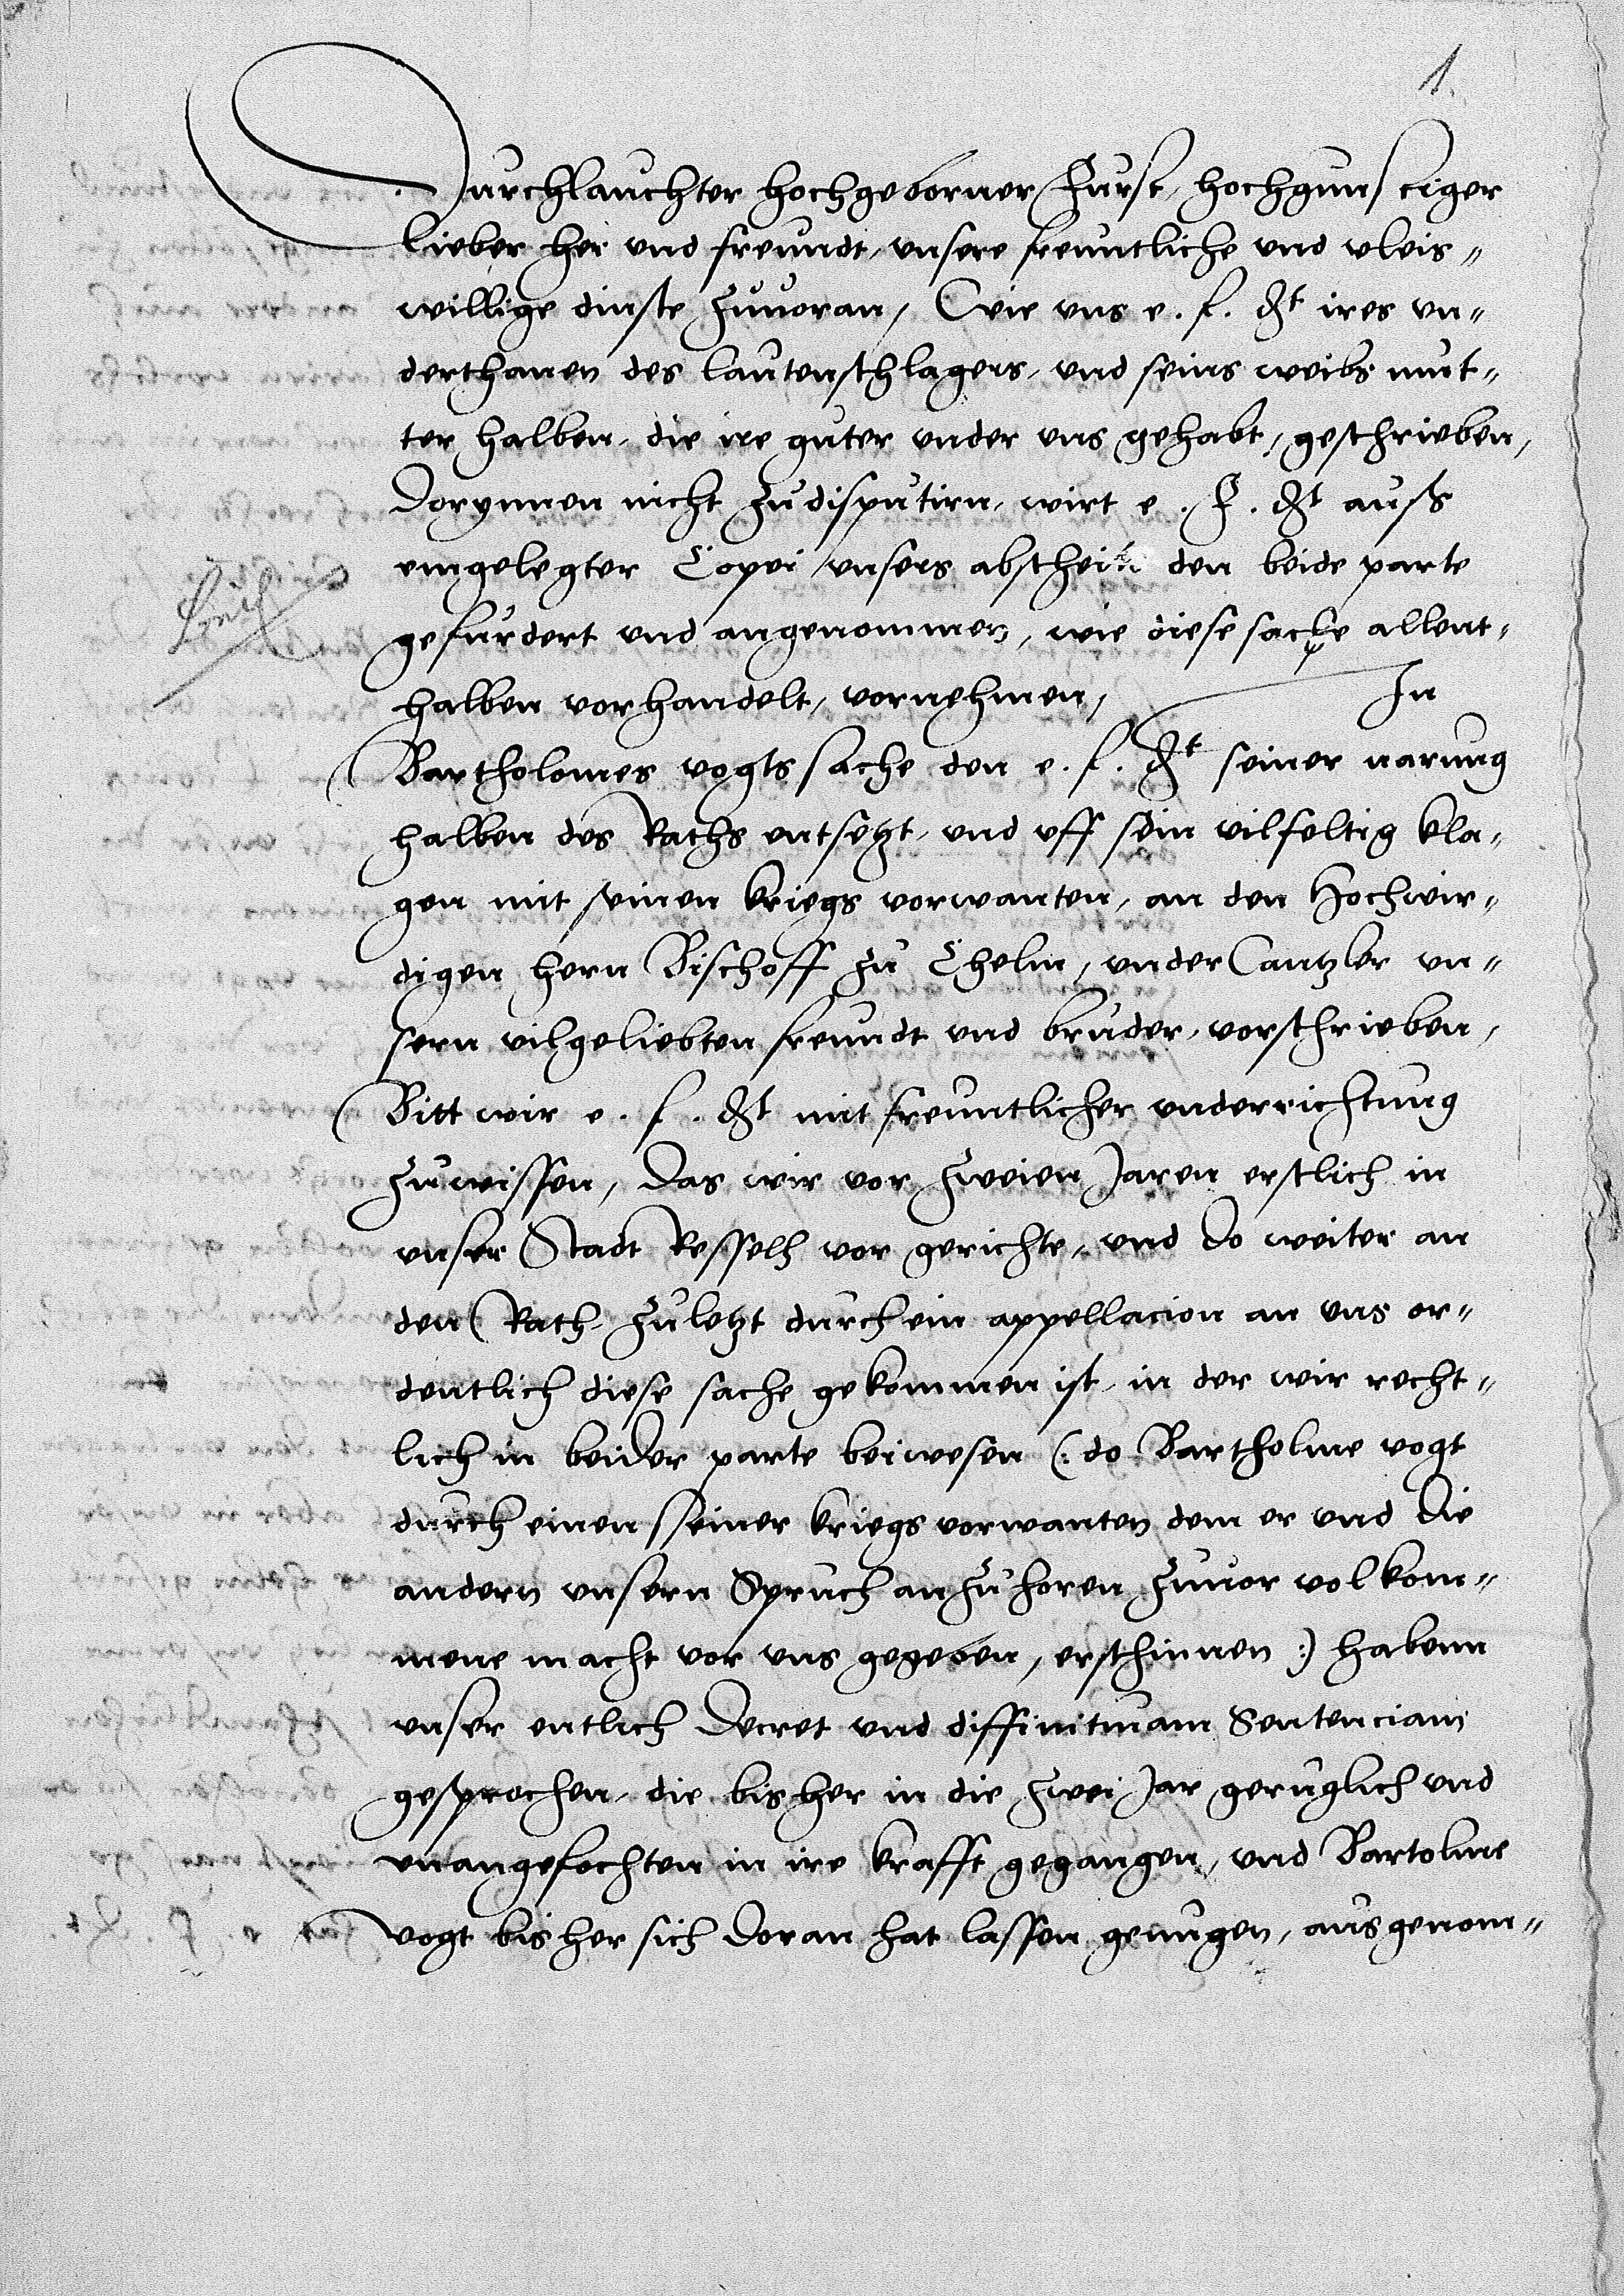 1.
Durchlauchter hochgeborner Furst, hochgunstiger
lieber her vnd freundt, vnsere freuntliche vnd vleis-
willige dinste zuuoran, Wie vns e. f. d^t ires vn-
derthanen des lautenschlagers, vnd seins weibs mut-
ter halben, die ire guter vnder vns gehabt, geschrieben,
Dorynnen nicht zudisputirn, wirt e. F. d^t auß
eingelegter Copei vnsers abscheit den beide parte
gefurdert vnd angenommen, wie diese sache allent-
halben vorhandelt, vornehmen, In
Bartholomes vogts sache den e. f. d^t seiner narung
halben des Raths entsetzt, vnd vff sein vilfeltig kla-
gen mit seinen kriegs vorwanten, an den Hochwir-
digen hern Bischoff zu Chelm, vnder Cantzler vn-
sern vilgeliebten freundt vnd bruder, vorschrieben,
Bitt wir e. f. d^t mit freuntlicher vnderrichtung
zuwissen, das wir vor zweien Jaren erstlich in
vnser Stadt Resselh vor gerichte, vnd do weiter an
den Rath, zuletzt durch ein appellacion an vns or-
dentlich diese sache gekommen ist, in der wir recht-
lich in beider parte beiwesen (: do Bartholme vogt
durch einen seiner kriegs vorwanten dem er vnd die
andern vnsern Spruch anzuhoren zuuor volkom-
mene macht vor vns gegeben, erschinnen :) habenn
vnser entlich Decret vnd diffinitiuam Sentenciam
gesprochen, die bis her in die zwei Jar geruglich vnd
vnangefochten in ire krafft gegangen, vnd Bartolme
vogt bis her sich doran hat lassen genugen, ausgenom-